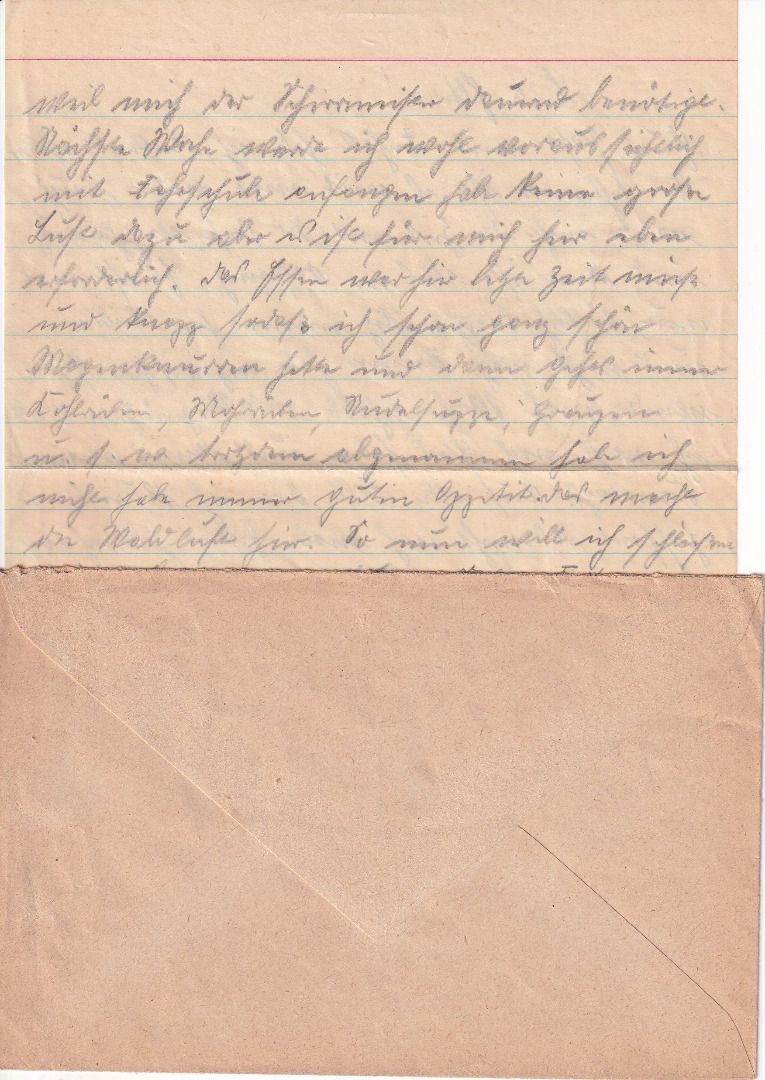 weil mich der Schirrmeister dauernd benötigt.
Nächste Woche werde ich wohl voraussichtlich
mit Fahrschule anfangen habe keine grosse
Lust dazu aber es ist für mich hier eben
erforderlich. Das Essen war hir letzte Zeit miese
und knapp sodass ich schon ganz schön
Magenknurren hatte und dann gehts immer
Kohlrüben, Mohrrüben, Nudelsuppe, Graupen
u. s. w. trotzdem abgenommen habe ich
nicht habe immer guten Appetit. das macht
die Waldluft hier. So nun will ich schliessen